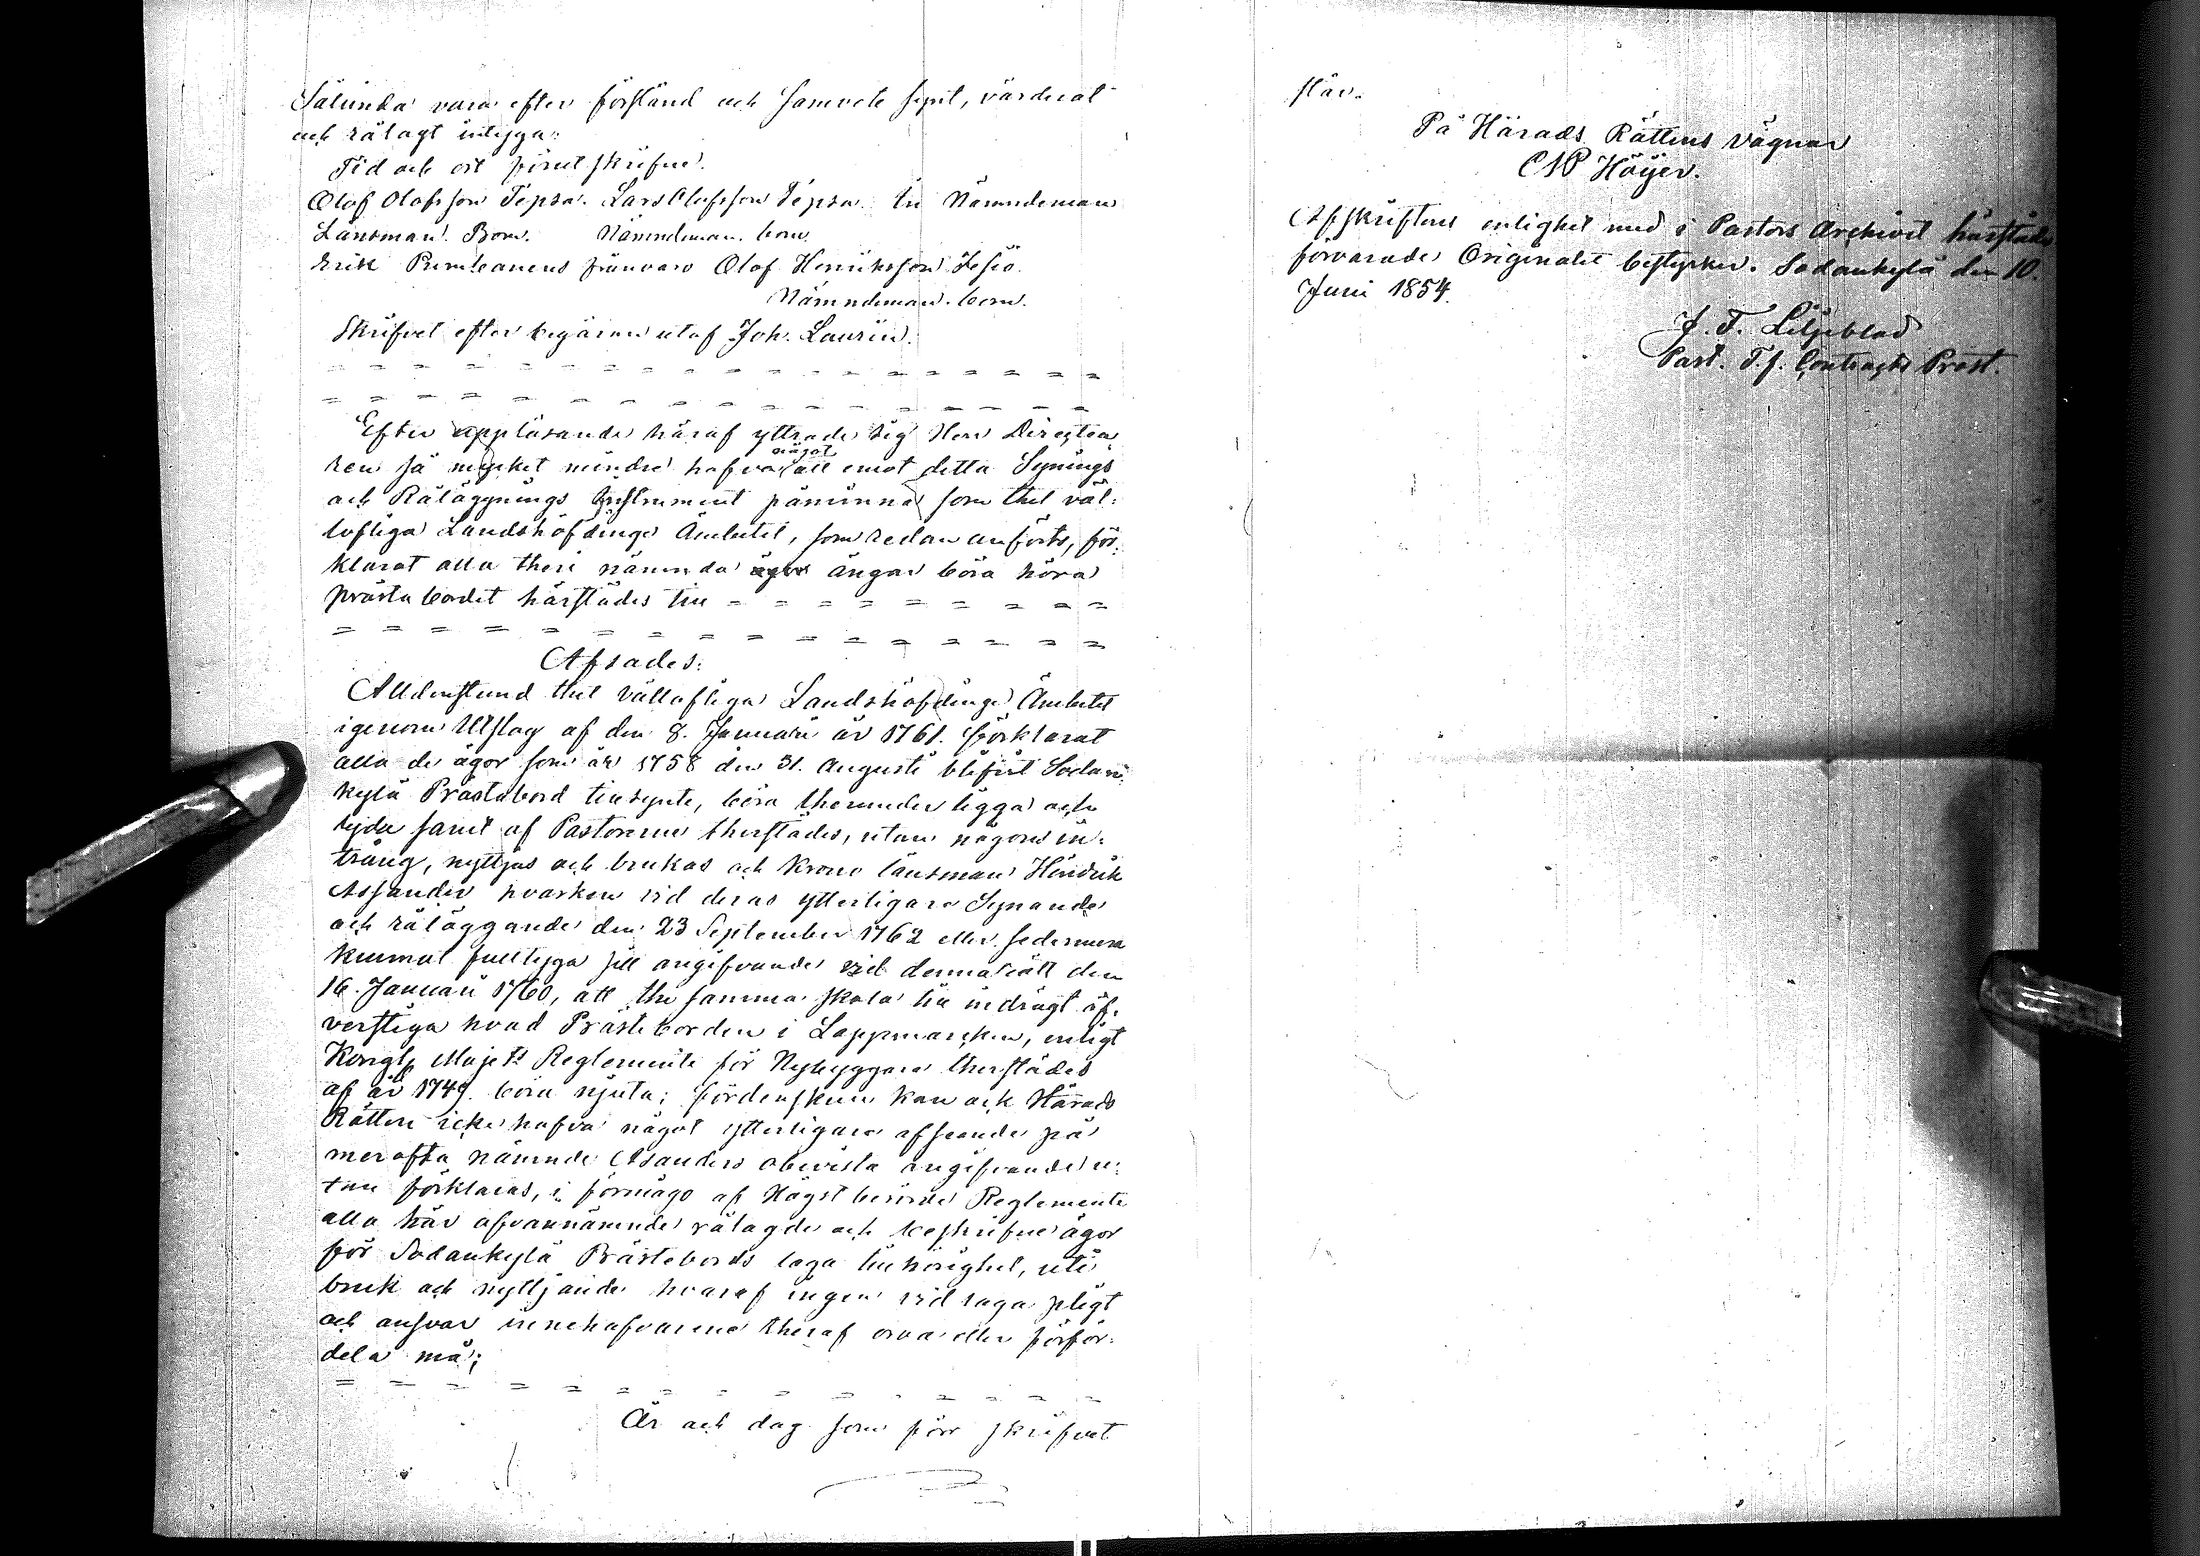 Sålunda vara efter förstånd och samvete synt, värderat
och rålagt intyga:
Tid och ort förut skrifne.
Olof Olofsson Tepsa. Lars Olofsson Tepsa. En Nämndeman
Länsman. Bom. Nämndeman. bom.
Erik Purnuanens frånvaro Olof Henriksson Jesiö.
Nämndeman. bom.
Skrifvet efter begäran utaf Joh. Laurin.
Efter uppläsande häraf yttrade sig Herr Directeu
ren så mycket mindre hafva något att emot detta Synings
och Råläggnings Instrument påminna som thet väl-
lofliga Landshöfdinge Ämbetet, som redan anförts, för-
klarat alla theri nämnda ängar böra höra
prästabordet härstädes till
Afsades:
Alldenstund thet Vällofliga Landshöfdinge Ämbetet
igenom Utslag af den 8. Januarii år 1761. förklarat
alla de ägor som år 1758 den 31. Augusti blifvit Sodan-
kylä Prästabord tillsynte, böra therunder ligga och
lyda samt af Pastorerne therstädes, utan någons in-
trång, nyttjas och brukas och Krono länsman Hindrik
Assander hvarken vid deras ytterligare Synande
och råläggande den 23 September 1762 eller sedermera
kunnat fulltyga sitt angifvande vid denna rätt den
16. Januarii 1760, att the samma skola till indrägt öf-
verstiga hvad Prästeborden i Lappmarcken, enligt
Kongl. Maj:ts Reglemente för Nybyggare therstädes
af år 1749. böra njuta; fördenskull kan ock Härads
Rätten icke hafva något ytterligare afseende på
merofta nämnde Asanders obevista angifvande u-
tan förklaras, i förmågo af Högst berörde Reglemente
alla här ofvannämnde rålagde och beskrifne ägor
för Sodankylä Prästebords laga tillhörighet, uti
bruk och nyttjande hvaraf ingen vid laga pligt
och ansvar innehafvarene theraf oroa eller förför-
dela må;
År och dag som förr skrifvet
står.
På Härads Rättens vägnar
CNP Höijer.
Afskriftens enlighet med i Pastors Archivet härstädes
förvarade Originalet bestyrker. Sodankylä den 10.
Juni 1854.
J. F. Liljeblad
Past. T.f. Contracts Prost.